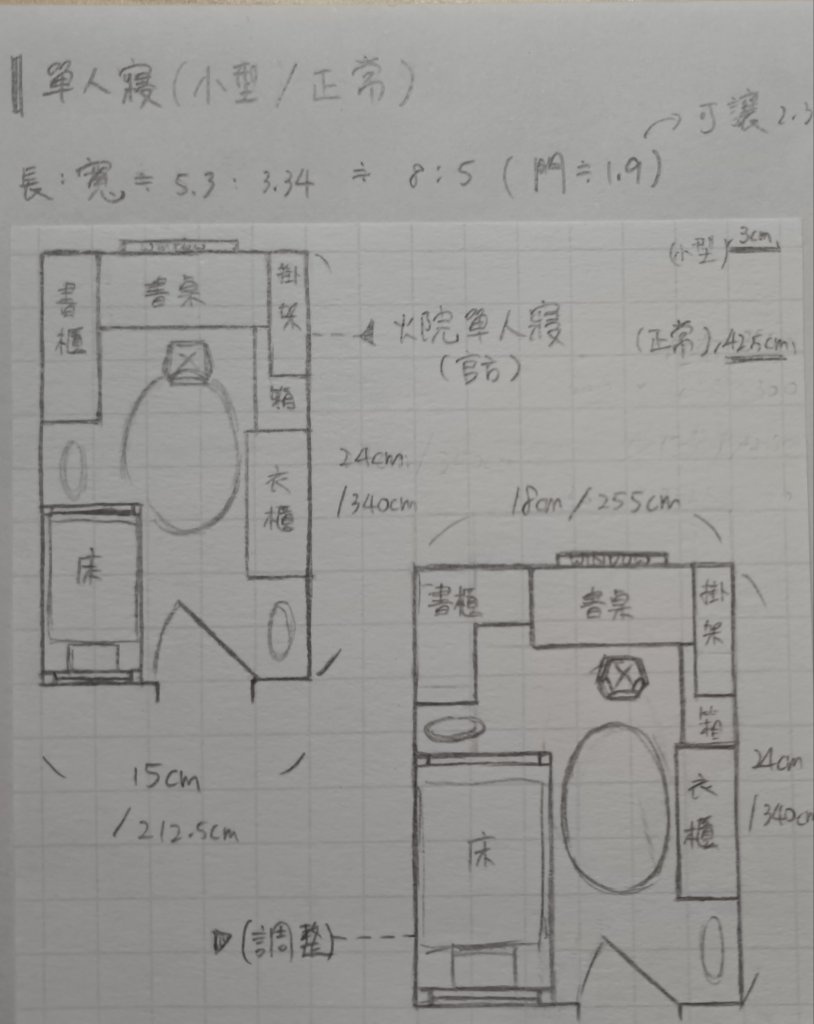 單人寢(小型/正常)
可讓 2.3
長:寬≑5.3:3.34 ≑ 8:5 (門≑1.9)
(小型) 3cm
WINDOW
書櫃
書桌
掛架
火院單人寢
(官方)
(正常) 42.5cm
箱
衣櫃
24cm
/340cm
床
15cm
/212.5cm
18cm/255cm
WINDOW
書櫃
書桌
掛架
箱
衣櫃
24cm
/340cm
床
(調整)